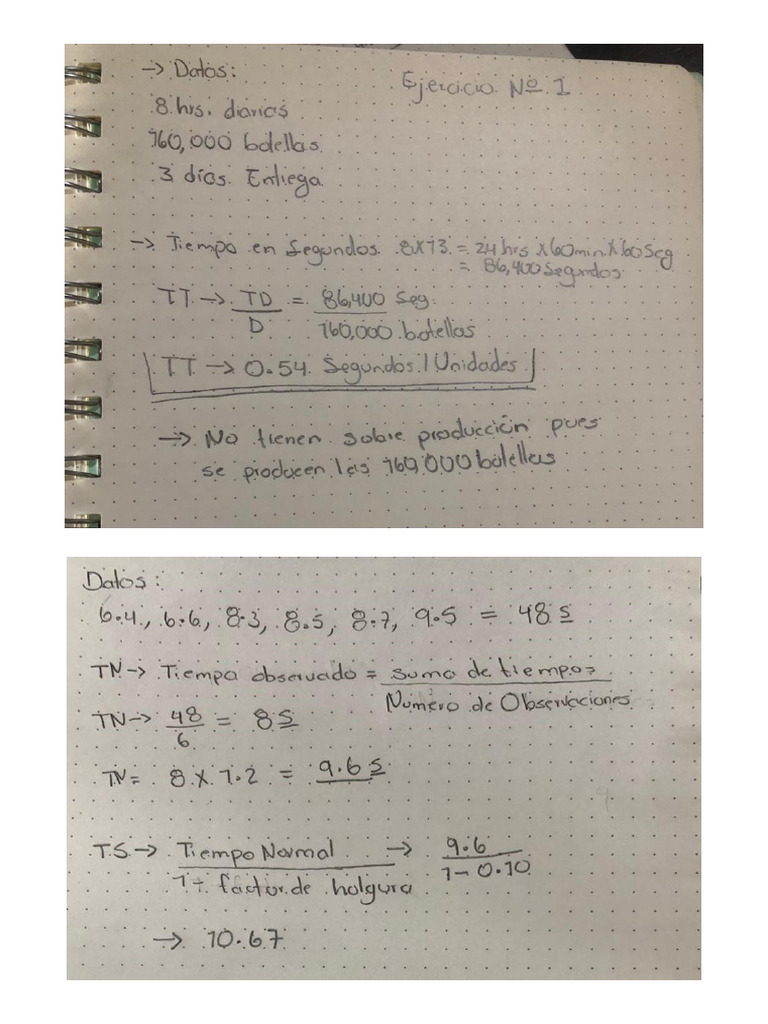 → Datos:
Ejercicio Nº 1
8 hrs. diarias
160,000 botellas
3 días. Entrega
→ Tiempo en Segundos. 8 x 3 = 24 hrs x 60min x 60 Seg
= 86,400 Segundos
TT → TD / D = 86,400 Seg. / 160,000 botellas
TT → 0.54 Segundos / Unidades
→ No tienen sobre producción pues
se producen las 160,000 botellas
Datos:
6.4, 6.6, 8.3, 8.5, 8.7, 9.5 = 48 s
TN → Tiempo observado = suma de tiempos / Numero de Observaciones
TN → 48 / 6 = 8 s
TN = 8 x 1.2 = 9.6 s
TS → Tiempo Normal / 1 - factor de holgura → 9.6 / 1 - 0.10
→ 10.67